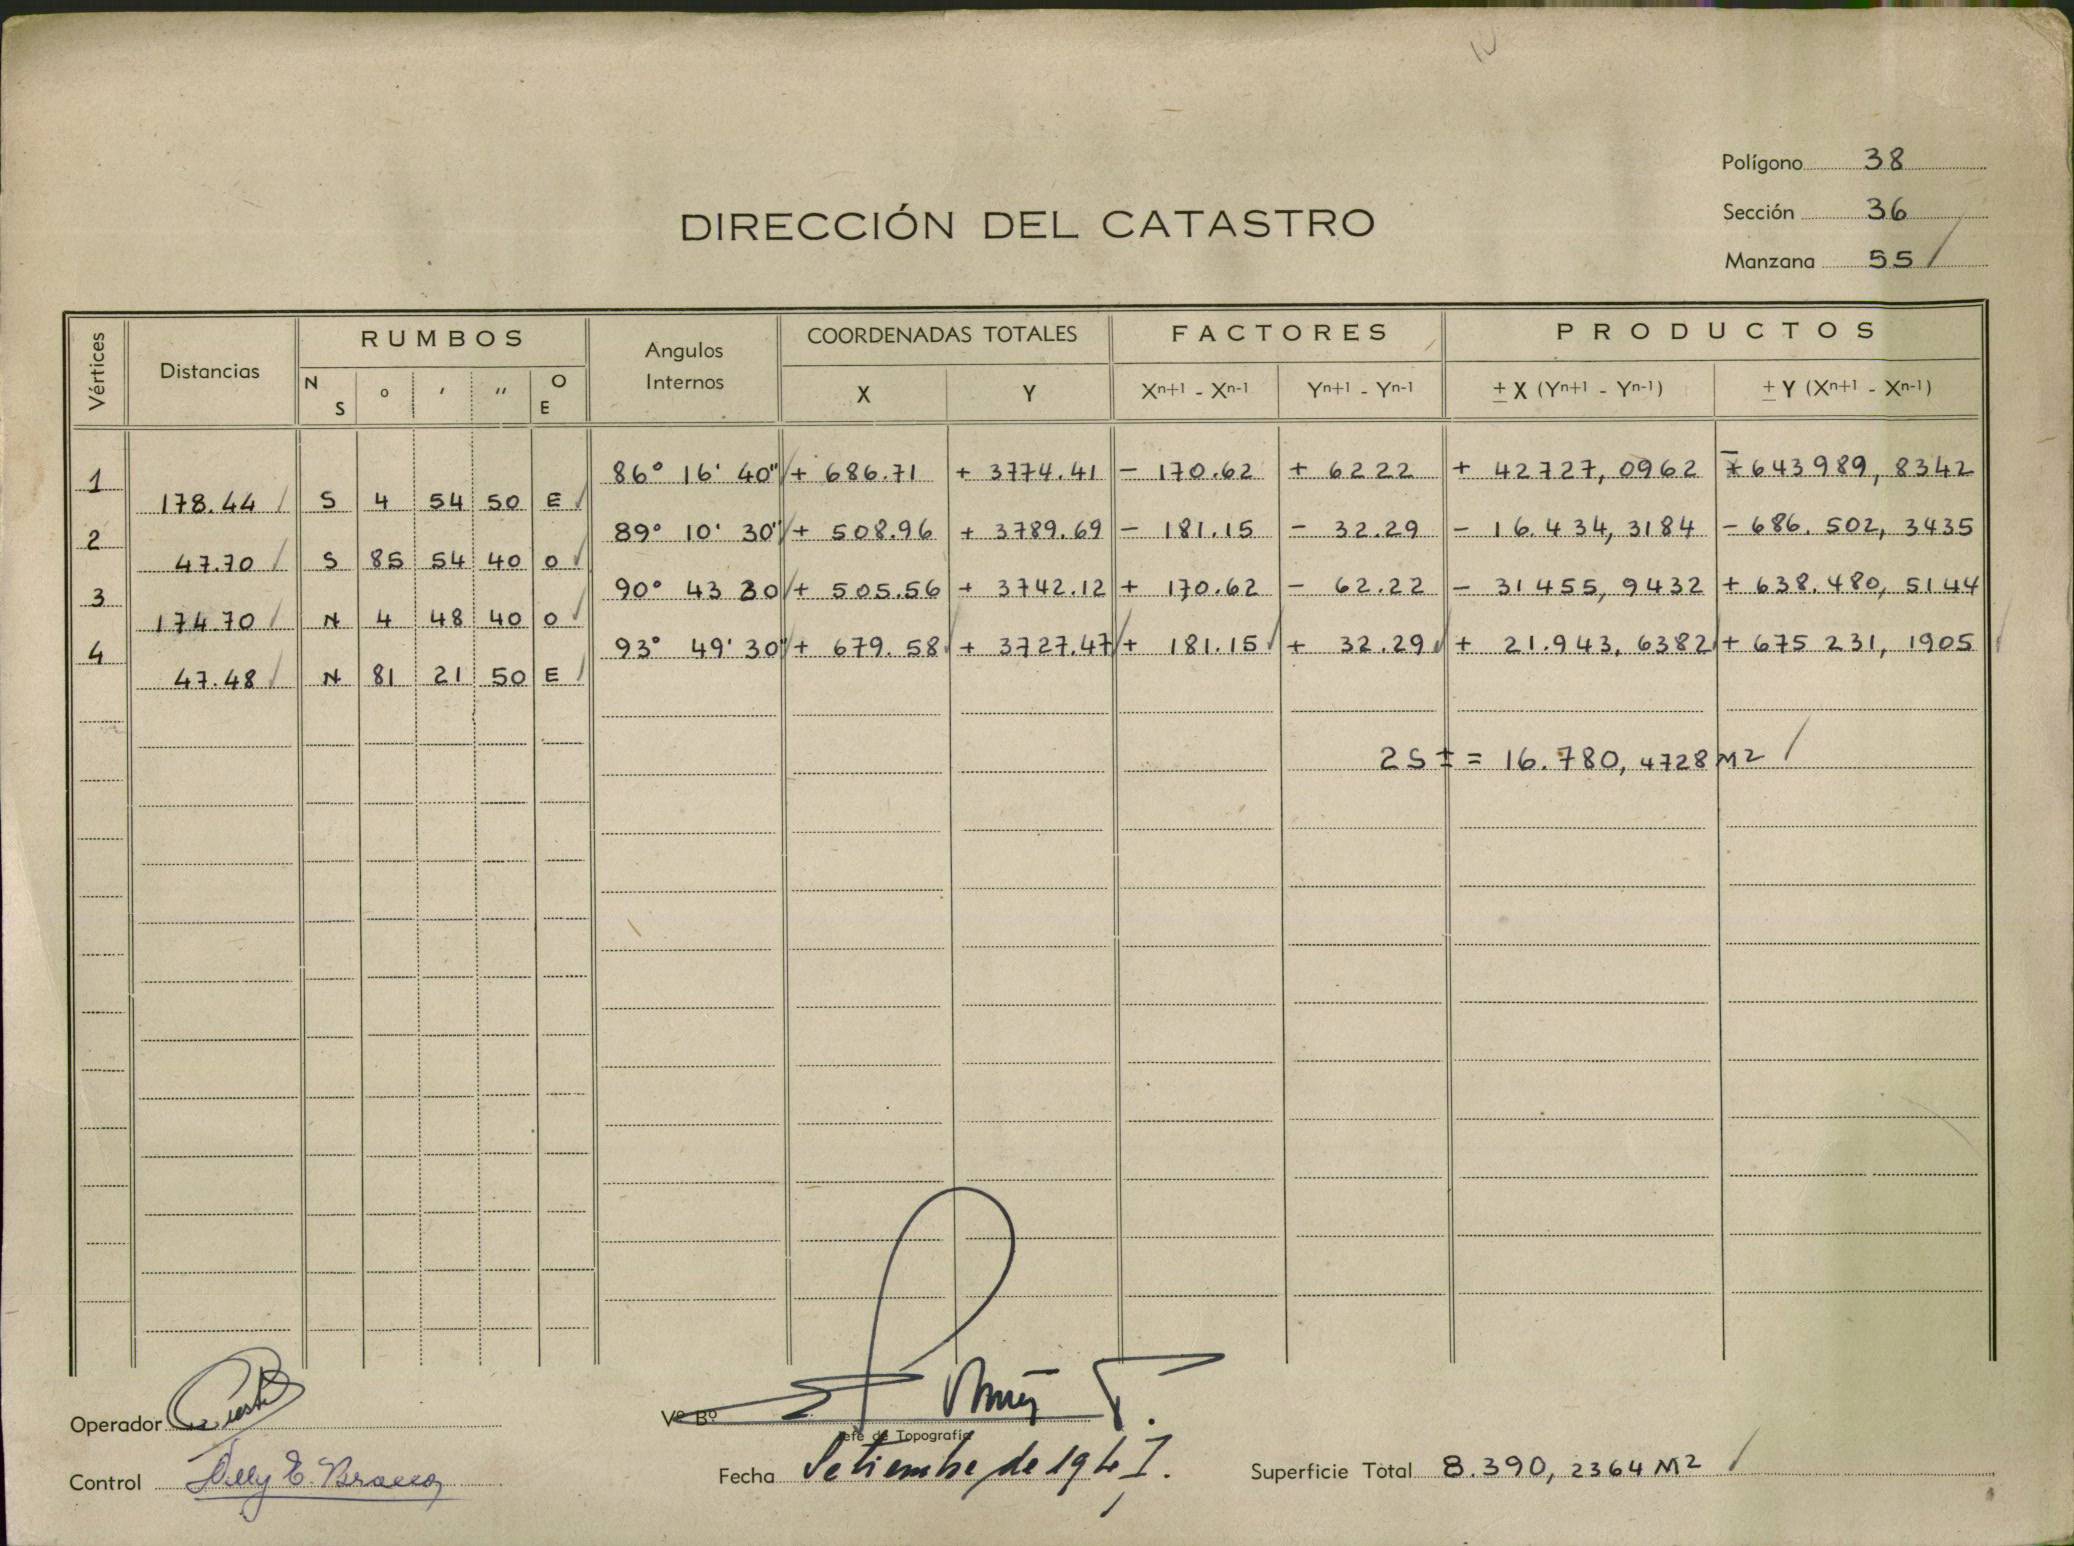 Polígono 38
DIRECCIÓN DEL CATASTRO
Sección 36
Manzana 55
Vértices Distancias RUMBOS Angulos Internos COORDENADAS TOTALES FACTORES PRODUCTOS
N S ° ' '' O E X Y Xn+1 - Xn-1 Yn+1 - Yn-1 ± X (Yn+1 - Yn-1) ± Y (Xn+1 - Xn-1)
1 86° 16' 40" + 686.71 + 3774.41 - 170.62 + 62 22 + 42727,0962 - 643989,8342
178.44 S 4 54 50 E
2 89° 10' 30" + 508.96 + 3789.69 - 181.15 - 32.29 - 16.434,3184 - 686.502,3435
47.70 S 85 54 40 O
3 90° 43 30 + 505.56 + 3742.12 + 170.62 - 62.22 - 31455,9432 + 638.480,5144
174.70 N 4 48 40 O
4 93° 49' 30" + 679.58 + 3727.47 + 181.15 + 32.29 + 21.943,6382 + 675 231,1905
47.48 N 81 21 50 E
2 S ± = 16.780,4728 M2
Operador
Vº Bº
Jefe de Topografía
Control
Fecha Setiembre de 194
Superficie Total 8.390,2364 M2